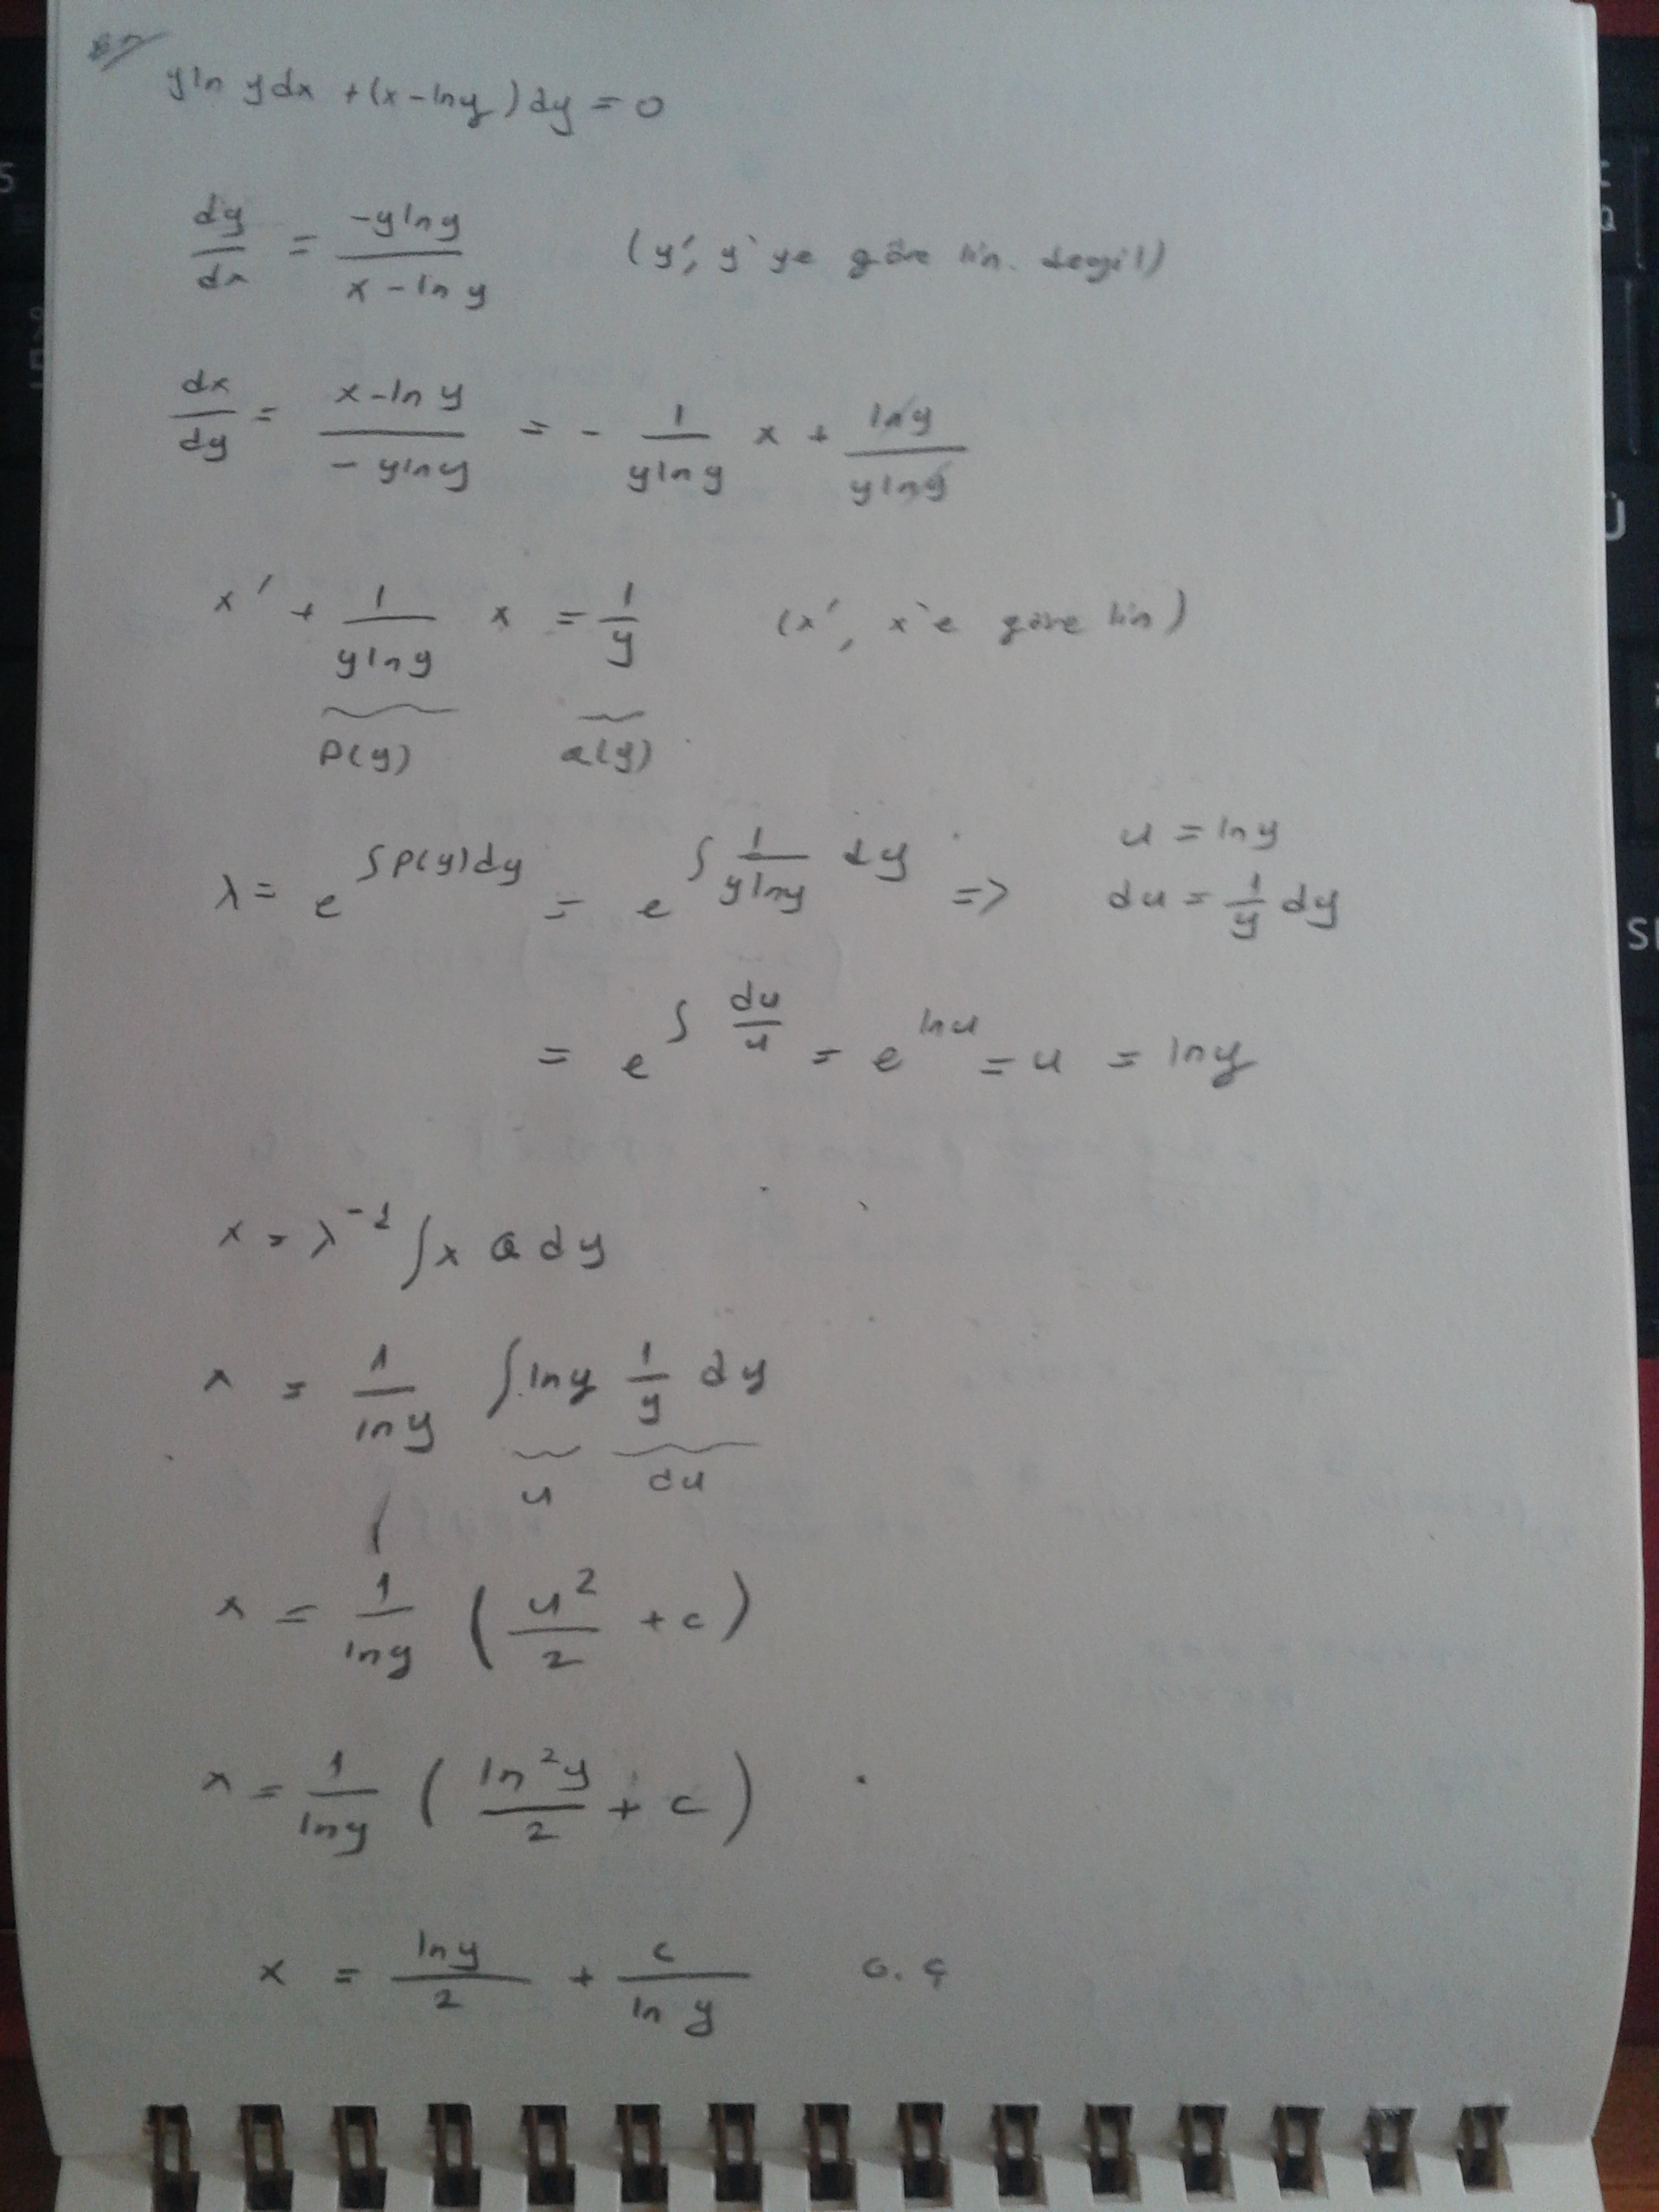 Ör/
y ln y dx + (x - ln y) dy = 0
dy/dx = -y ln y / x - ln y (y', y'ye göre lin. değil)
dx/dy = x - ln y / - y ln y = - 1/y ln y x + ln y / y ln y
x' + 1/y ln y x = 1/y (x', x'e göre lin)
P(y) Q(y)
λ = e^∫P(y)dy = e^∫ 1/y ln y dy => u = ln y
du = 1/y dy
= e^∫ du/u = e^ln u = u = ln y
x = λ^-1 ∫ x Q dy
x = 1/ln y ∫ ln y 1/y dy
u du
x = 1/ln y ( u²/2 + c )
x = 1/ln y ( ln²y/2 + c )
x = ln y/2 + c/ln y G.Ç